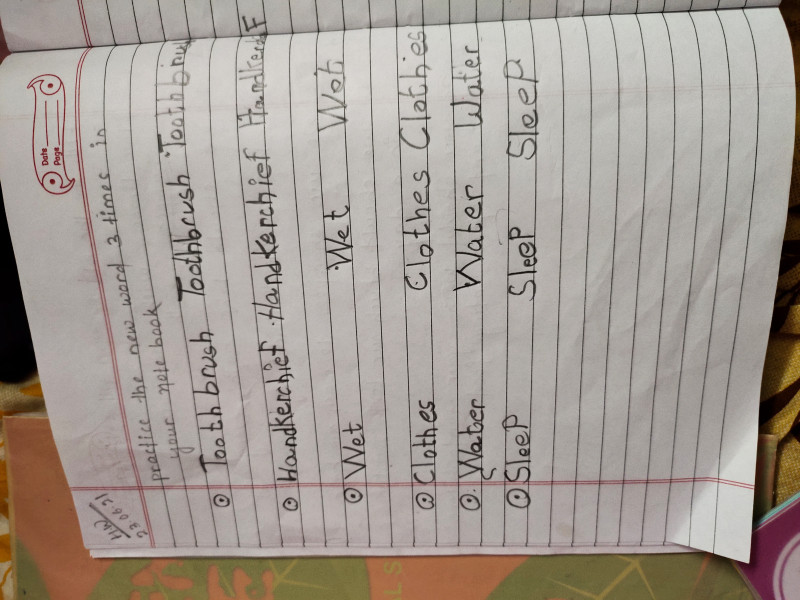 Date
Page
HW
practice the new word 3 times in
your note book
Toothbrush Toothbrush Toothbrus
Handkerchief Handkerchief Handkerchief
Wet Wet Wet
Clothes Clothes Clothes
Water Water Water
Sleep Sleep Sleep
ALS